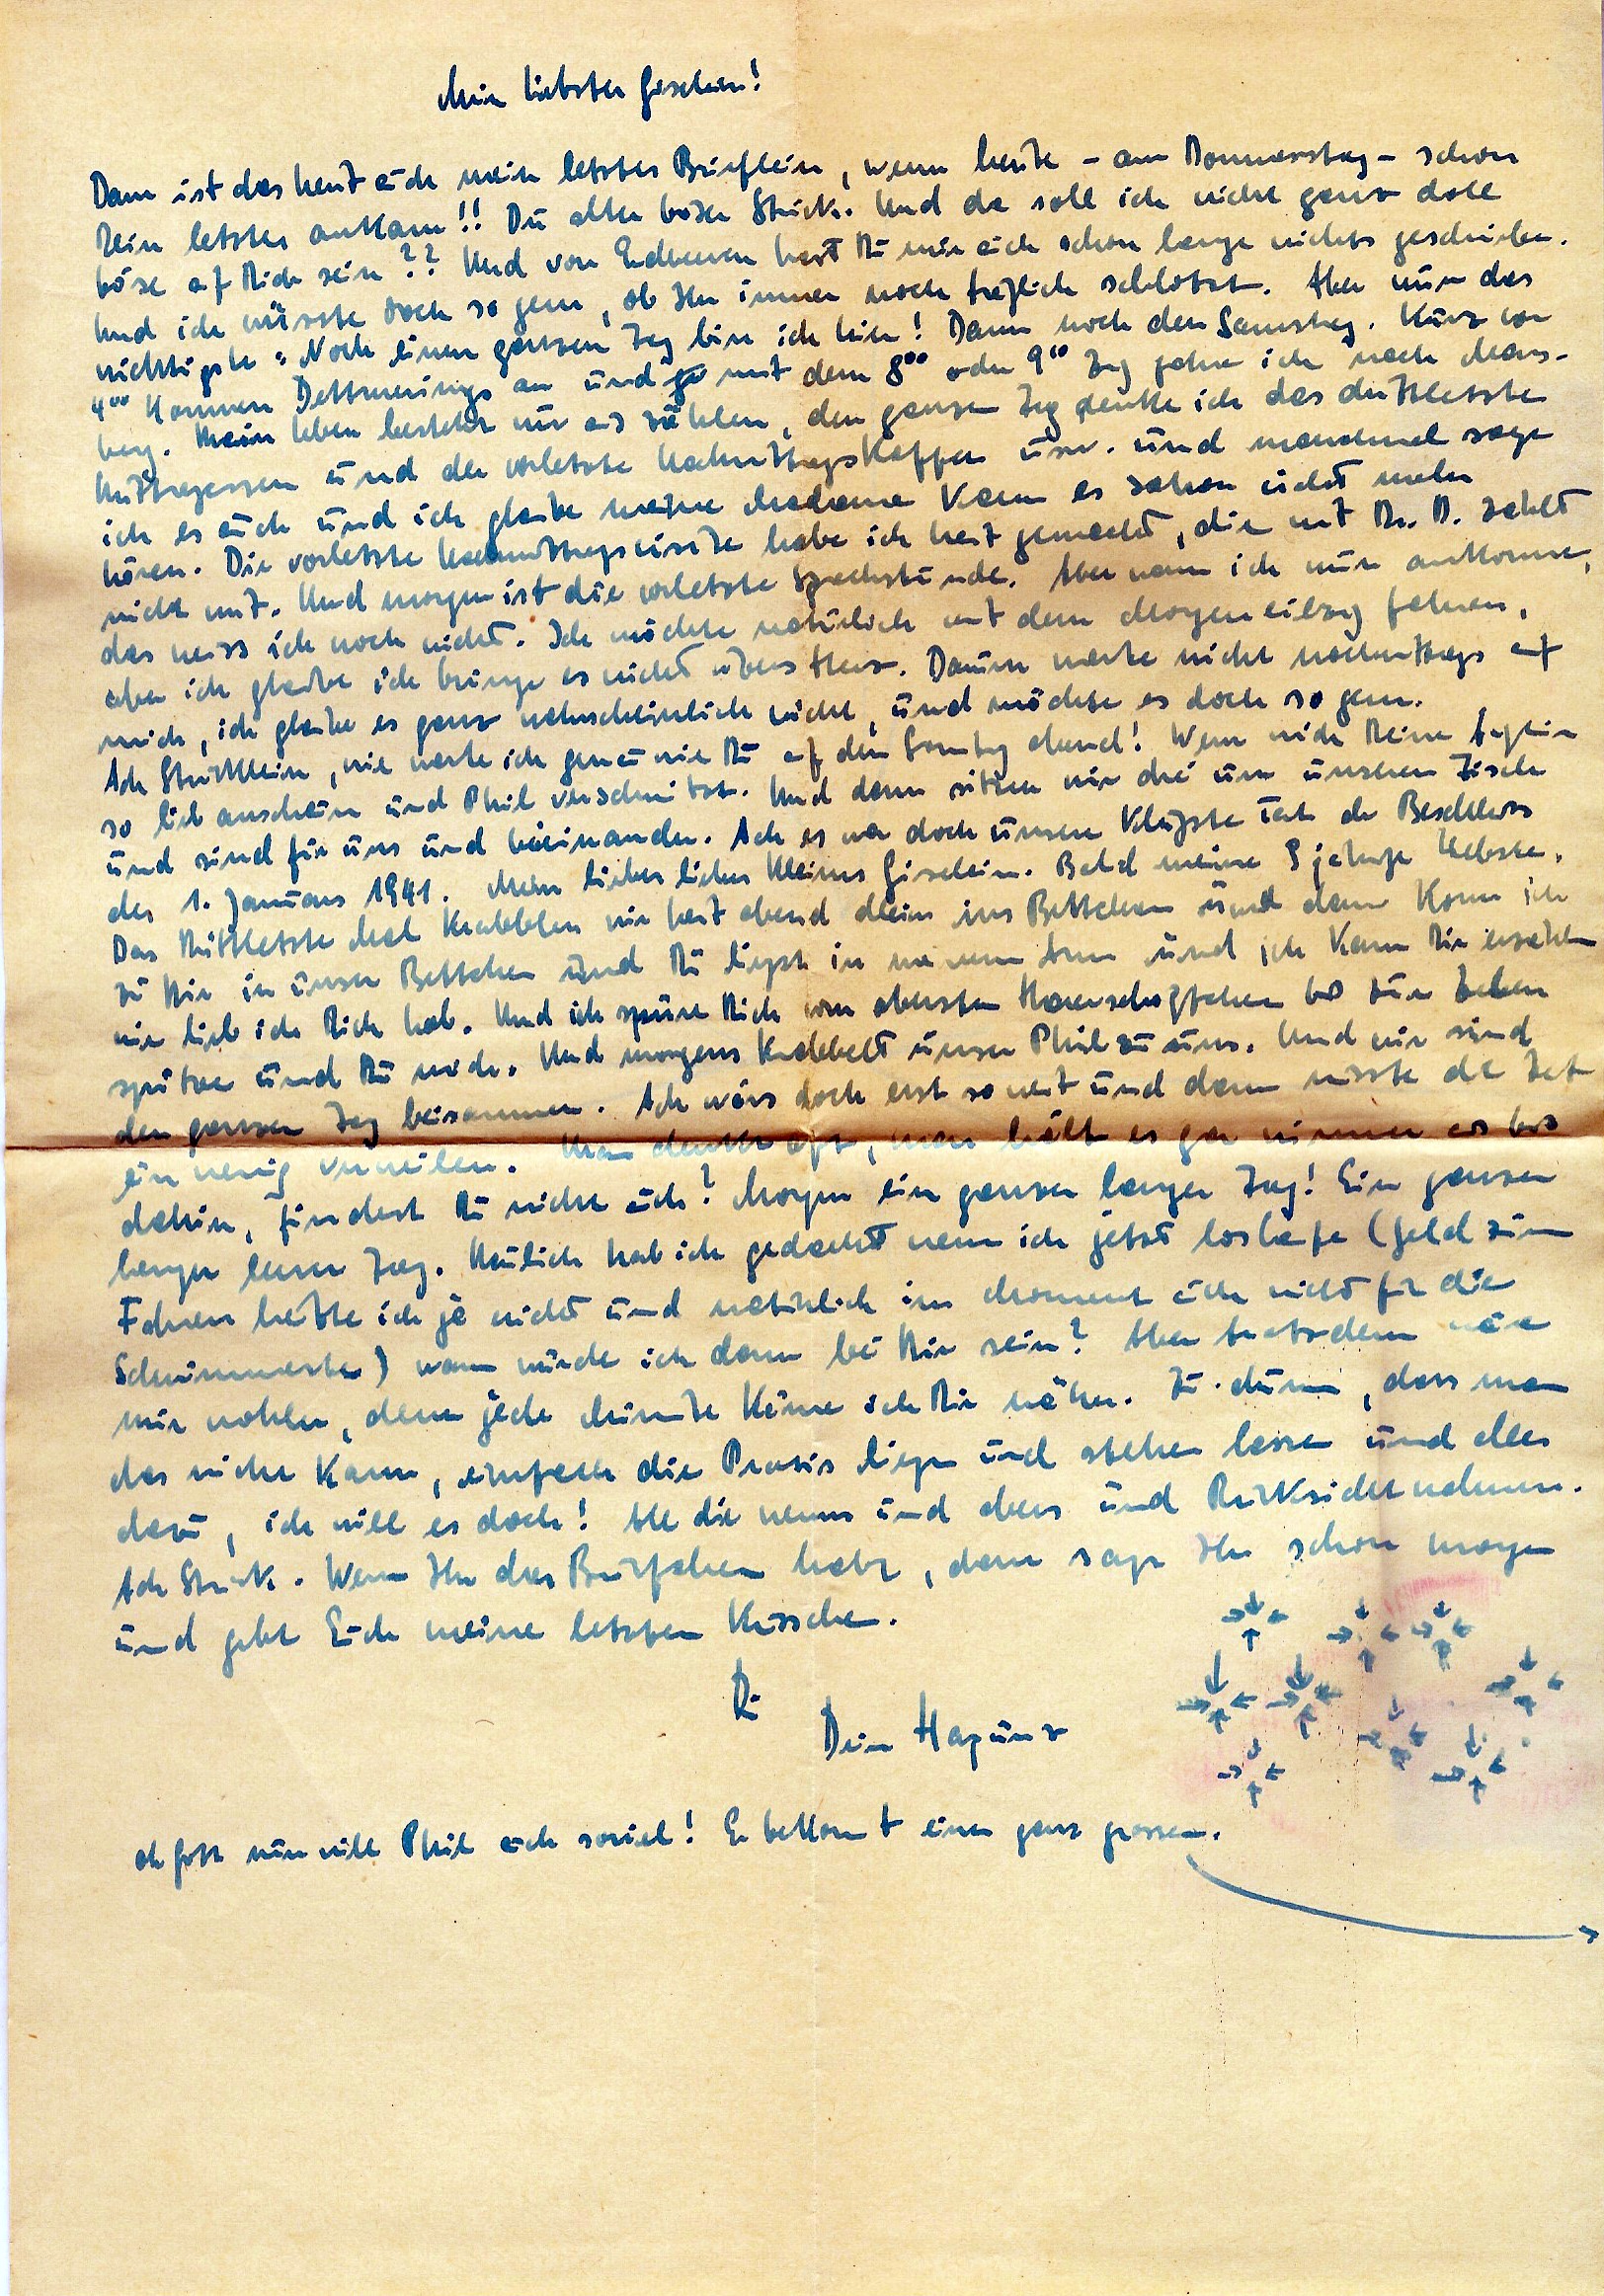 Mein liebstes Giselein!
Dann ist das heut auch mein letztes Brieflein, wenn heute – am Donnerstag – schon
Dein letztes ankam!! Du alter böser Strick. Und da soll ich nicht ganz doll
böse auf Dich sein?? Und von Erdbeeren hast Du mir auch schon lange nichts geschrieben.
Und ich wüsste doch so gern, ob Ihr immer noch täglich schlotzt. Aber nun das
wichtigste: Noch einen ganzen Tag bin ich hier! Dann noch den Samstag. Kurz vor
4⁰⁰ kommen Dettmerings an und mit dem 8⁰⁰ oder 9¹⁰ Zug fahre ich nach
berg. Mein Leben besteht nur aus zählen, den ganzen Tag denke ich das drittletzte
Mittagessen und der vorletzte Nachmittagskaffee usw. und manchmal sage
ich es auch und ich glaube meine Madame kann es schon nicht mehr
hören. Die vorletzte Nachmittagsvisite habe ich heut gemacht, die mit Dr. D. zählt
nicht mit. Und morgen ist die vorletzte Sprechstunde. Aber wann ich nun ankomme,
das weiss ich noch nicht. Ich möchte natürlich mit dem Morgeneilzug fahren,
aber ich glaube ich bringe es nicht übers Herz. Darum warte nicht nachmittags auf
mich, ich glaube es ganz wahrscheinlich nicht, und möchte es doch so gern.
Ach Stricklein, wie warte ich genau wie Du auf den Sonntag abend! Wenn mich Deine Äuglein
so lieb anschaun und Phil verschmitzt. Und dann sitzen wir drei um unseren Tisch
und sind für uns und beieinander. Ach es war doch unsere klügste Tat der Beschluss
des 1. Januars 1941. Mein liebes liebes kleines Giselein. Bald meine 8 jährige Liebste.
Das drittletzte Mal krabbeln wir heut abend allein ins Bettchen und dann komm ich
zu Dir in unser Bettchen und Du liegst in meinem Arm und ich kann Dir erzählen
wie lieb ich Dich hab. Und ich spüre Dich vom obersten Haarschöpfchen bis zur Zehen
spitze und Du mich. Und morgens krabbelt unser Phil zu uns. Und wir sind
den ganzen Tag beisammen. Ach wärs doch erst so weit und dann müsste die Zeit
ein wenig verweilen. Man denkt oft, man hält es gar nimmer aus bis
dahin, findest Du nicht auch? Morgen ein ganzer langer Tag! Ein ganzer
langer leerer Tag. Neulich hab ich gedacht wenn ich jetzt loslaufe (Geld zum
Fahren hätte ich ja nicht und natürlich im Moment auch nicht für die
) wann würde ich dann bei Dir sein? Aber trotzdem wäre
mir wohler, denn jede Minute käme ich Dir näher. Zu dumm, dass man
das nicht kann, einfach die Praxis liegen und stehen lassen und alles
dazu, ich will es doch! All die wenns und abers und Rücksichtnahmen.
Ach Strick. Wenn Ihr das Briefchen habt, dann sagt Ihr schon morgen
und gebt Euch meine letzten Küsschen.
Dein
ach Gott nun will Phil auch soviel! Er bekommt einen ganz grossen.